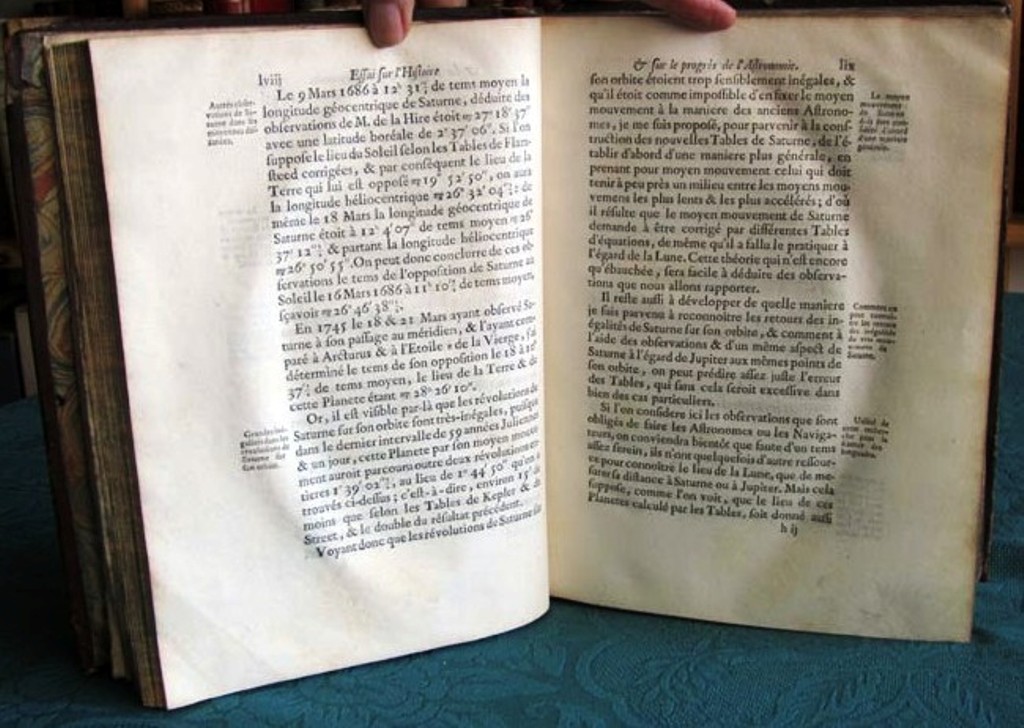 lviij
Eſſai ſur l'Hiſtoire
Le 9 Mars 1686 à 12ʰ 31'½ de tems moyen la
longitude géocentrique de Saturne, déduite des
obſervations de M. de la Hire étoit ♍ 27° 18' 37"
avec une latitude boréale de 2° 37' 06". Si l'on
ſuppoſe le lieu du Soleil ſelon les Tables de Flam-
ſteed corrigées, & par conſéquent le lieu de la
Terre qui lui eſt oppoſé ♍ 19° 52' 50", on aura
la longitude héliocentrique ♍ 26° 32' 04"½: de
même le 18 Mars la longitude géocentrique de
Saturne étoit à 12ʰ 4' 07" de tems moyen ♍ 26°
37' 12"½ & partant la longitude héliocentrique
♍ 26° 50' 55". On peut donc conclurre de ces ob-
ſervations le tems de l'oppoſition de Saturne au
Soleil le 16 Mars 1686 à 11ʰ 10'½ de tems moyen,
ſçavoir ♍ 26° 46' 38"½.
En 1745 le 18 & 21 Mars ayant obſervé Sa-
turne à ſon paſſage au méridien, & l'ayant com-
paré à Arcturus & à l'Etoile ε de la Vierge, j'ai
déterminé le tems de ſon oppoſition le 18 à 10ʰ
37'½ de tems moyen, le lieu de la Terre & de
cette Planete étant ♍ 28° 26' 10".
Or, il eſt viſible par-là que les révolutions de
Saturne ſur ſon orbite ſont très-inégales, puiſque
dans le dernier intervalle de 59 années Juliennes
& un jour, cette Planete par ſon moyen mouve-
ment auroit parcouru outre deux révolutions en-
tieres 1° 39' 02"½, au lieu de 1° 44' 50" qu'on a
trouvés ci-deſſus; c'eſt-à-dire, environ 15' de
moins que ſelon les Tables de Kepler & de
Street, & le double du réſultat précédent.
Voyant donc que les révolutions de Saturne ſur
Autres obſer-
vations de Sa-
turne dans les
Grandes iné-
galités dans les
révolutions de
Saturne ſur
ſon orbite.
& ſur le progrès de l'Aſtronomie.
lix
ſon orbite étoient trop ſenſiblement inégales, &
qu'il étoit comme impoſſible d'en fixer le moyen
mouvement à la maniere des anciens Aſtrono-
mes, je me ſuis propoſé, pour parvenir à la conſ-
truction des nouvelles Tables de Saturne, de l'é-
tablir d'abord d'une maniere plus générale, en
prenant pour moyen mouvement celui qui doit
tenir à peu près un milieu entre les moyens mou-
vemens les plus lents & les plus accélérés; d'où
il réſulte que le moyen mouvement de Saturne
demande à être corrigé par différentes Tables
d'équations, de même qu'il a fallu le pratiquer à
l'égard de la Lune. Cette théorie qui n'eſt encore
qu'ébauchée, ſera facile à déduire des obſerva-
tions que nous allons rapporter.
Il reſte auſſi à développer de quelle maniere
je ſuis parvenu à reconnoître les retours des in-
égalités de Saturne ſur ſon orbite, & comment à
l'aide des obſervations & d'un même aſpect de
Saturne à l'égard de Jupiter aux mêmes points de
ſon orbite, on peut prédire aſſez juſte l'erreur
des Tables, qui ſans cela ſeroit exceſſive dans
bien des cas particuliers.
Si l'on conſidere ici les obſervations que ſont
obligés de faire les Aſtronomes ou les Naviga-
teurs, on conviendra bientôt que faute d'un tems
aſſez ſerein, ils n'ont quelquefois d'autre reſſour-
ce pour connoître le lieu de la Lune, que de me-
ſurer ſa diſtance à Saturne ou à Jupiter. Mais cela
ſuppoſe, comme l'on voit, que le lieu de ces
Planetes calculé par les Tables, ſoit donné auſſi
h ij
Le moyen
mouvement
de Saturne
Comment on
peut connoî-
tre les retours
des inégalités
Saturne.